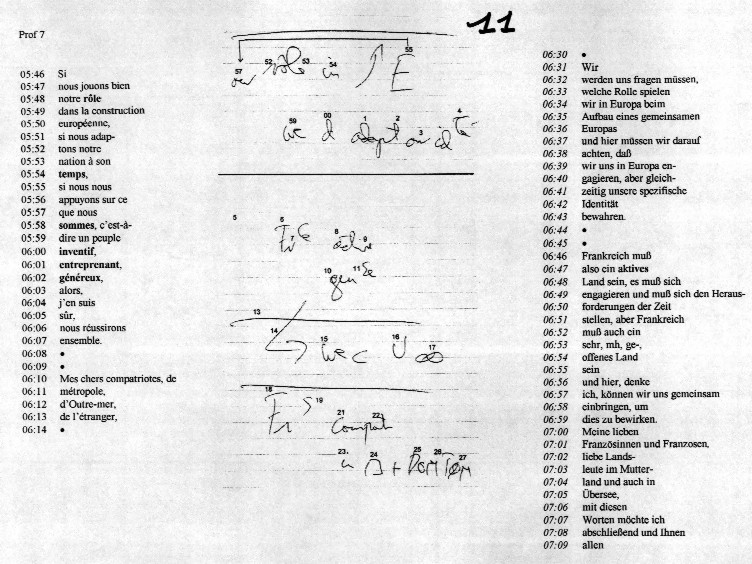 11
Prof 7
05:46 Si
05:47 nous jouons bien
05:48 notre rôle
05:49 dans la construction
05:50 européenne,
05:51 si nous adap-
05:52 tons notre
05:53 nation à son
05:54 temps,
05:55 si nous nous
05:56 appuyons sur ce
05:57 que nous
05:58 sommes, c'est-à-
05:59 dire un peuple
06:00 inventif,
06:01 entreprenant,
06:02 généreux,
06:03 alors,
06:04 j'en suis
06:05 sûr,
06:06 nous réussirons
06:07 ensemble.
06:08 •
06:09 •
06:10 Mes chers compatriotes, de
06:11 métropole,
06:12 d'Outre-mer,
06:13 de l'étranger,
06:14 •
52 53 54 55
57 rôle in E
59 00 1 2 3 4
we d adapt
5 6 7 8 9
10 11
13
14 15 16 17
we
18 19
21 22
Compat
23 24 25 26 27
+ DOM TOM
06:30 •
06:31 Wir
06:32 werden uns fragen müssen,
06:33 welche Rolle spielen
06:34 wir in Europa beim
06:35 Aufbau eines gemeinsamen
06:36 Europas
06:37 und hier müssen wir darauf
06:38 achten, daß
06:39 wir uns in Europa en-
06:40 gagieren, aber gleich-
06:41 zeitig unsere spezifische
06:42 Identität
06:43 bewahren.
06:44 •
06:45 •
06:46 Frankreich muß
06:47 also ein aktives
06:48 Land sein, es muß sich
06:49 engagieren und muß sich den Heraus-
06:50 forderungen der Zeit
06:51 stellen, aber Frankreich
06:52 muß auch ein
06:53 sehr, mh, ge-,
06:54 offenes Land
06:55 sein
06:56 und hier, denke
06:57 ich, können wir uns gemeinsam
06:58 einbringen, um
06:59 dies zu bewirken.
07:00 Meine lieben
07:01 Französinnen und Franzosen,
07:02 liebe Lands-
07:03 leute im Mutter-
07:04 land und auch in
07:05 Übersee,
07:06 mit diesen
07:07 Worten möchte ich
07:08 abschließend und Ihnen
07:09 allen